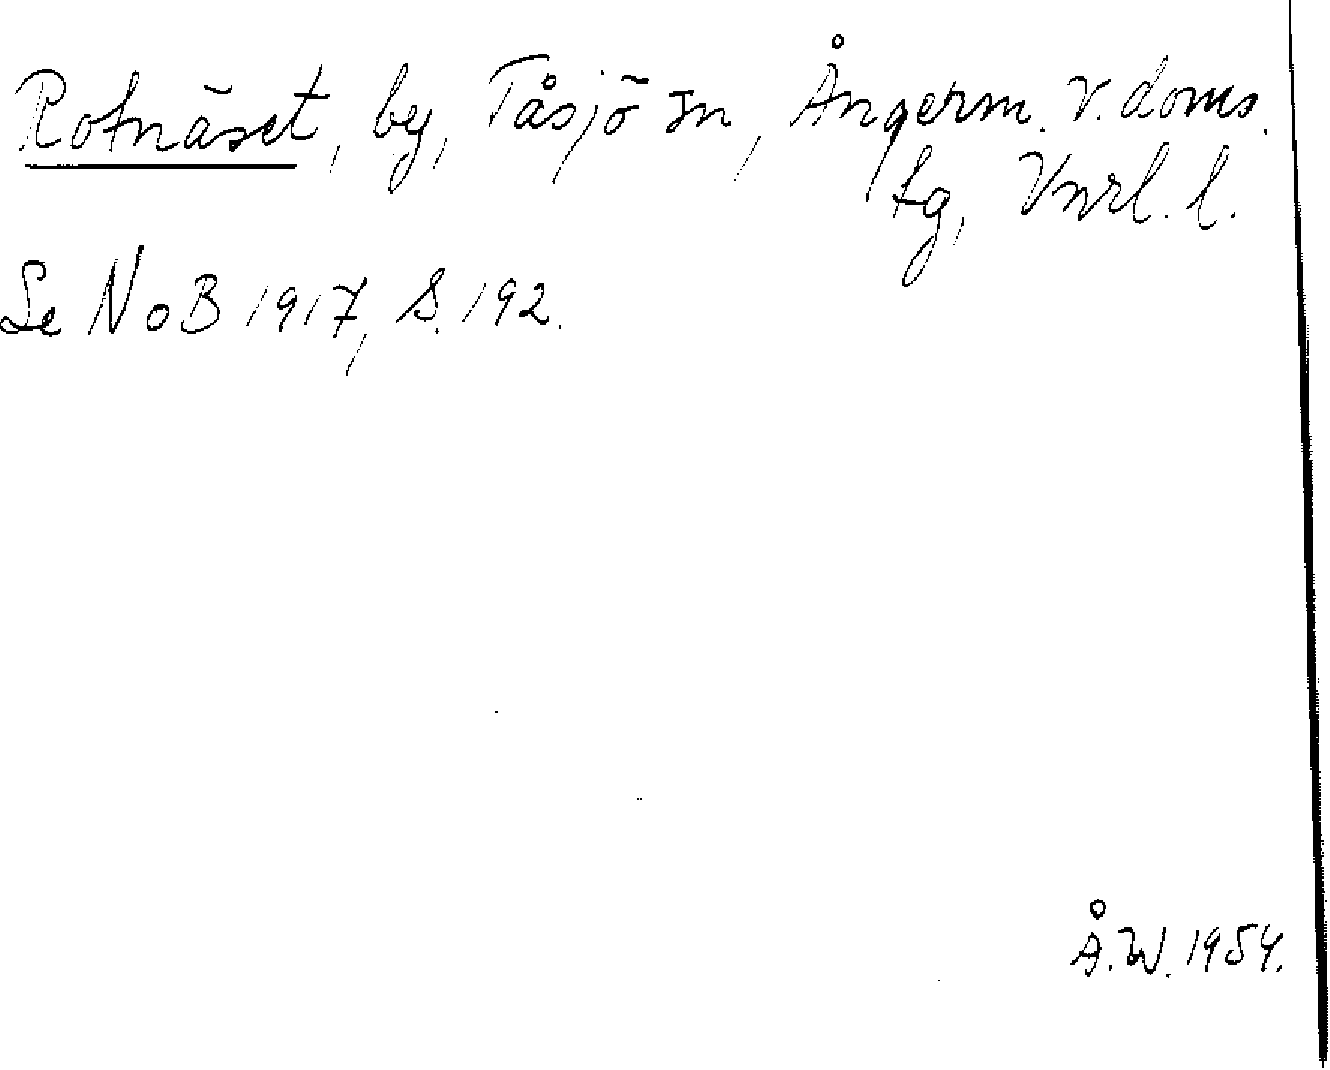 Rotnäset, by, Tåsjö sn, Ångerm. v. doms.
tg, Vnrl. l.
Se NoB 1917, s. 192.
Å.W. 1954.